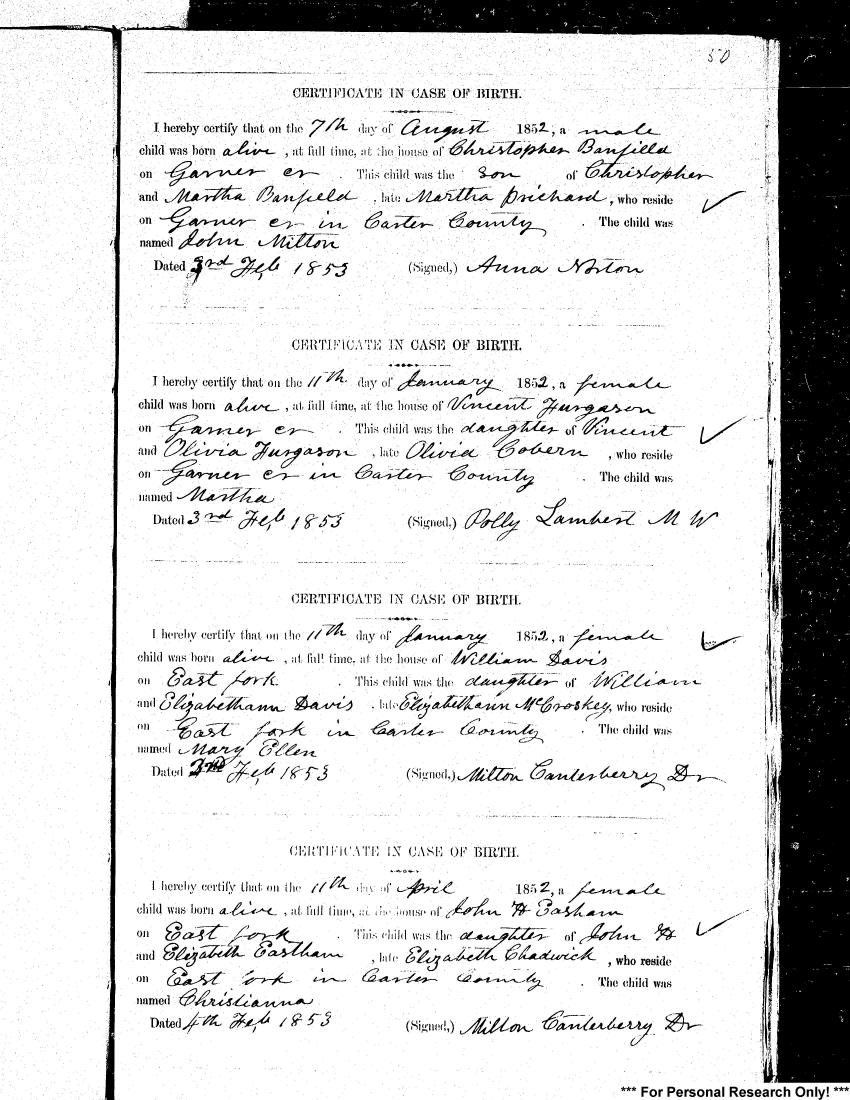 50
CERTIFICATE IN CASE OF BIRTH.
I hereby certify that on the 7th day of August 1852, a male
child was born alive, at full time, at the house of Christopher Banfield
on Garner cr. This child was the son of Christopher
and Martha Banfield, late Martha Prichard, who reside
on Garner cr in Carter County. The child was
named John Milton
Dated 3rd Feb 1853 (Signed,) Anna Norton
CERTIFICATE IN CASE OF BIRTH.
I hereby certify that on the 11th day of January 1852, a female
child was born alive, at full time, at the house of Vincent Furgason
on Garner cr. This child was the daughter of Vincent
and Olivia Furgason, late Olivia Cobern, who reside
on Garner cr in Carter County. The child was
named Martha
Dated 3rd Feb 1853 (Signed,) Polly Lambert M W
CERTIFICATE IN CASE OF BIRTH.
I hereby certify that on the 11th day of January 1852, a female
child was born alive, at full time, at the house of William Davis
on East fork. This child was the daughter of William
and Elizabethann Davis, late Elizabethann McCroskey, who reside
on East fork in Carter County. The child was
named Mary Ellen
Dated 3rd Feb 1853 (Signed,) Milton Canterberry Dr
CERTIFICATE IN CASE OF BIRTH.
I hereby certify that on the 11th day of April 1852, a female
child was born alive, at full time, at the house of John H Easham
on East fork. This child was the daughter of John H
and Elizabeth Eastham, late Elizabeth Chadwick, who reside
on East fork in Carter County. The child was
named Christianna
Dated 4th Feb 1853 (Signed,) Milton Canterberry Dr
*** For Personal Research Only! ***